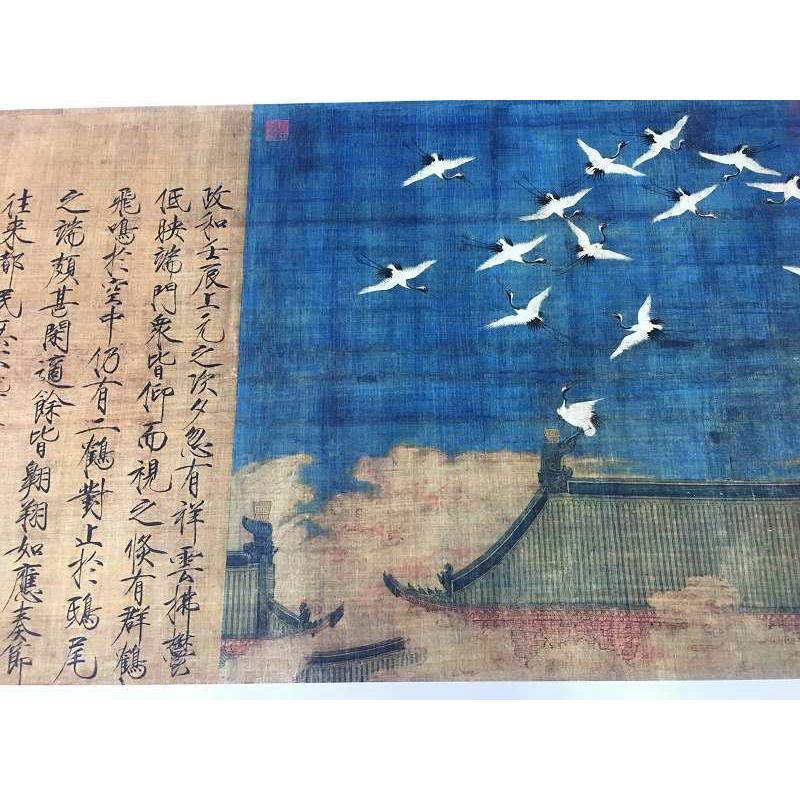 政和壬辰上元之次夕忽有祥雲拂鬱
低映端門衆皆仰而視之倏有群鶴
飛鳴於空中仍有二鶴對止於鴟尾
之端頗甚閑適餘皆翱翔如應奏節
往来都民